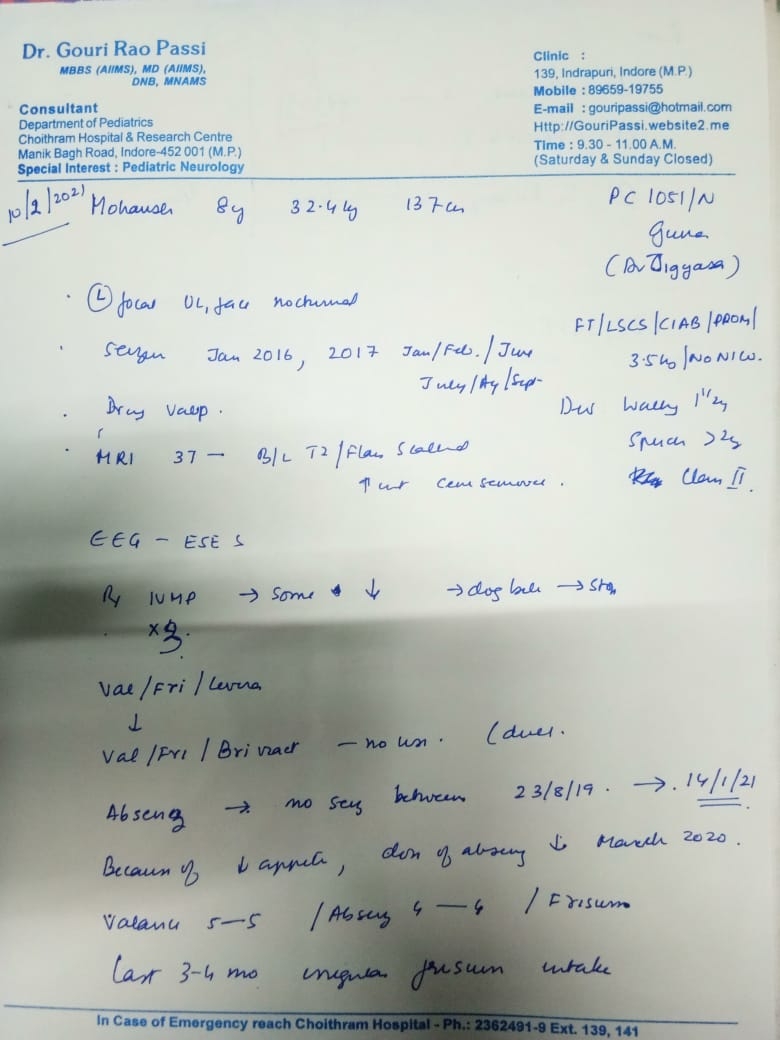 Dr. Gouri Rao Passi
MBBS (AIIMS), MD (AIIMS),
DNB, MNAMS
Consultant
Department of Pediatrics
Choithram Hospital & Research Centre
Manik Bagh Road, Indore-452 001 (M.P.)
Special Interest : Pediatric Neurology
Clinic :
139, Indrapuri, Indore (M.P.)
Mobile : 89659-19755
E-mail : gouripassi@hotmail.com
Http://GouriPassi.website2.me
Time : 9.30 - 11.00 A.M.
(Saturday & Sunday Closed)
10/2/2021 8y 32.4 kg 137 cm
PC 1051/N
Guna
(Dr Jigyasa)
Ⓛ focal UL, face nocturnal
Jan 2016, 2017 Jan/Feb./June
July/Ag/Sept
FT/LSCS/CIAB/PROM/
3.5 kg/No NICU.
Walking 1½y
>2y
Class II
Drug Valp.
MRI 3T - B/L T2/Flair
EEG - ESES
Rx IVMP → Some ↓ → dog bite → Stop
x 3.
Val/Fri/Levera
↓
Val/Fri/Briviact - no
→ no between 23/8/19 . → . 14/1/21
↓ , of ↓ March 2020.
5-5 / 4 - 4 / Frisium
Last 3-4 mo irregular frisium intake
In Case of Emergency reach Choithram Hospital - Ph.: 2362491-9 Ext. 139, 141